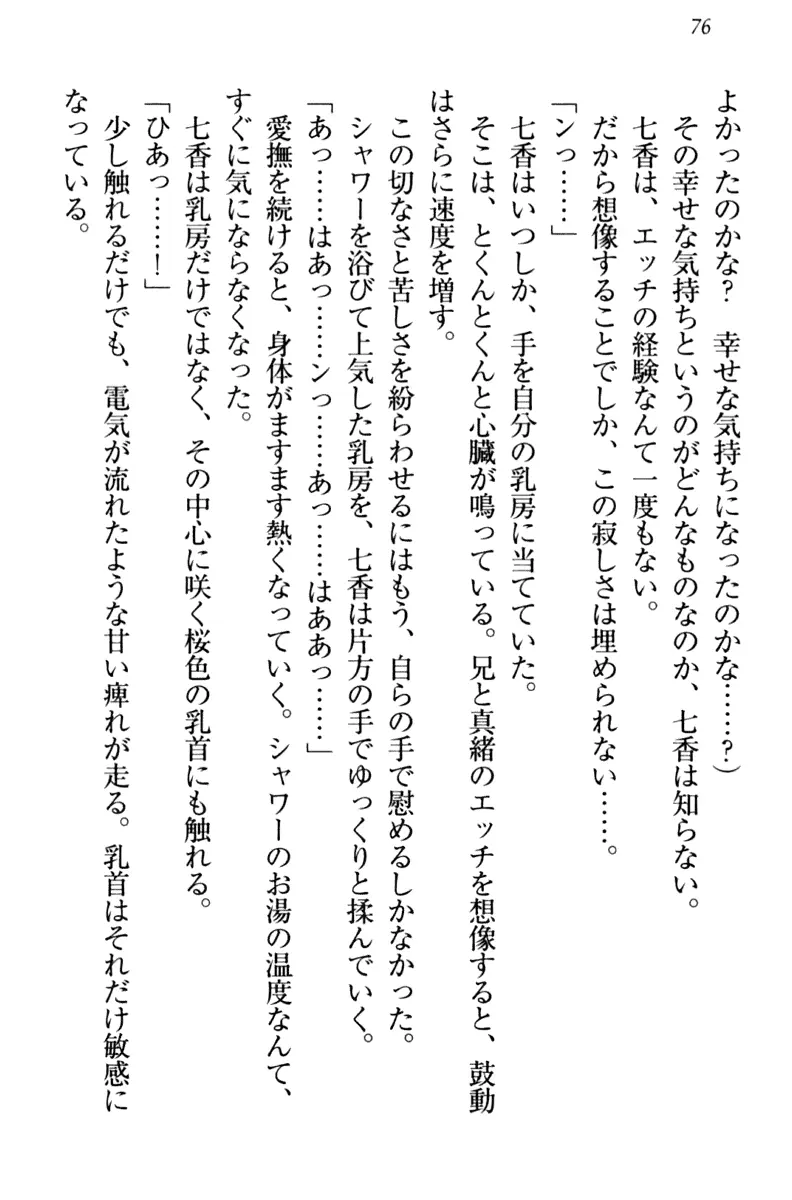 76
よかったのかな？　幸せな気持ちになったのかな……？）
その幸せな気持ちというのがどんなものなのか、七香は知らない。
七香は、エッチの経験なんて一度もない。
だから想像することでしか、この寂しさは埋められない……。
「ンっ……」
七香はいつしか、手を自分の乳房に当てていた。
そこは、とくんとくんと心臓が鳴っている。兄と真緒のエッチを想像すると、鼓動
はさらに速度を増す。
この切なさと苦しさを紛らわせるにはもう、自らの手で慰めるしかなかった。
シャワーを浴びて上気した乳房を、七香は片方の手でゆっくりと揉んでいく。
「あっ……はあっ……ンっ……あっ……はああっ……」
愛撫を続けると、身体がますます熱くなっていく。シャワーのお湯の温度なんて、
すぐに気にならなくなった。
七香は乳房だけではなく、その中心に咲く桜色の乳首にも触れる。
「ひあっ……！」
少し触れるだけでも、電気が流れたような甘い痺れが走る。乳首はそれだけ敏感に
なっている。